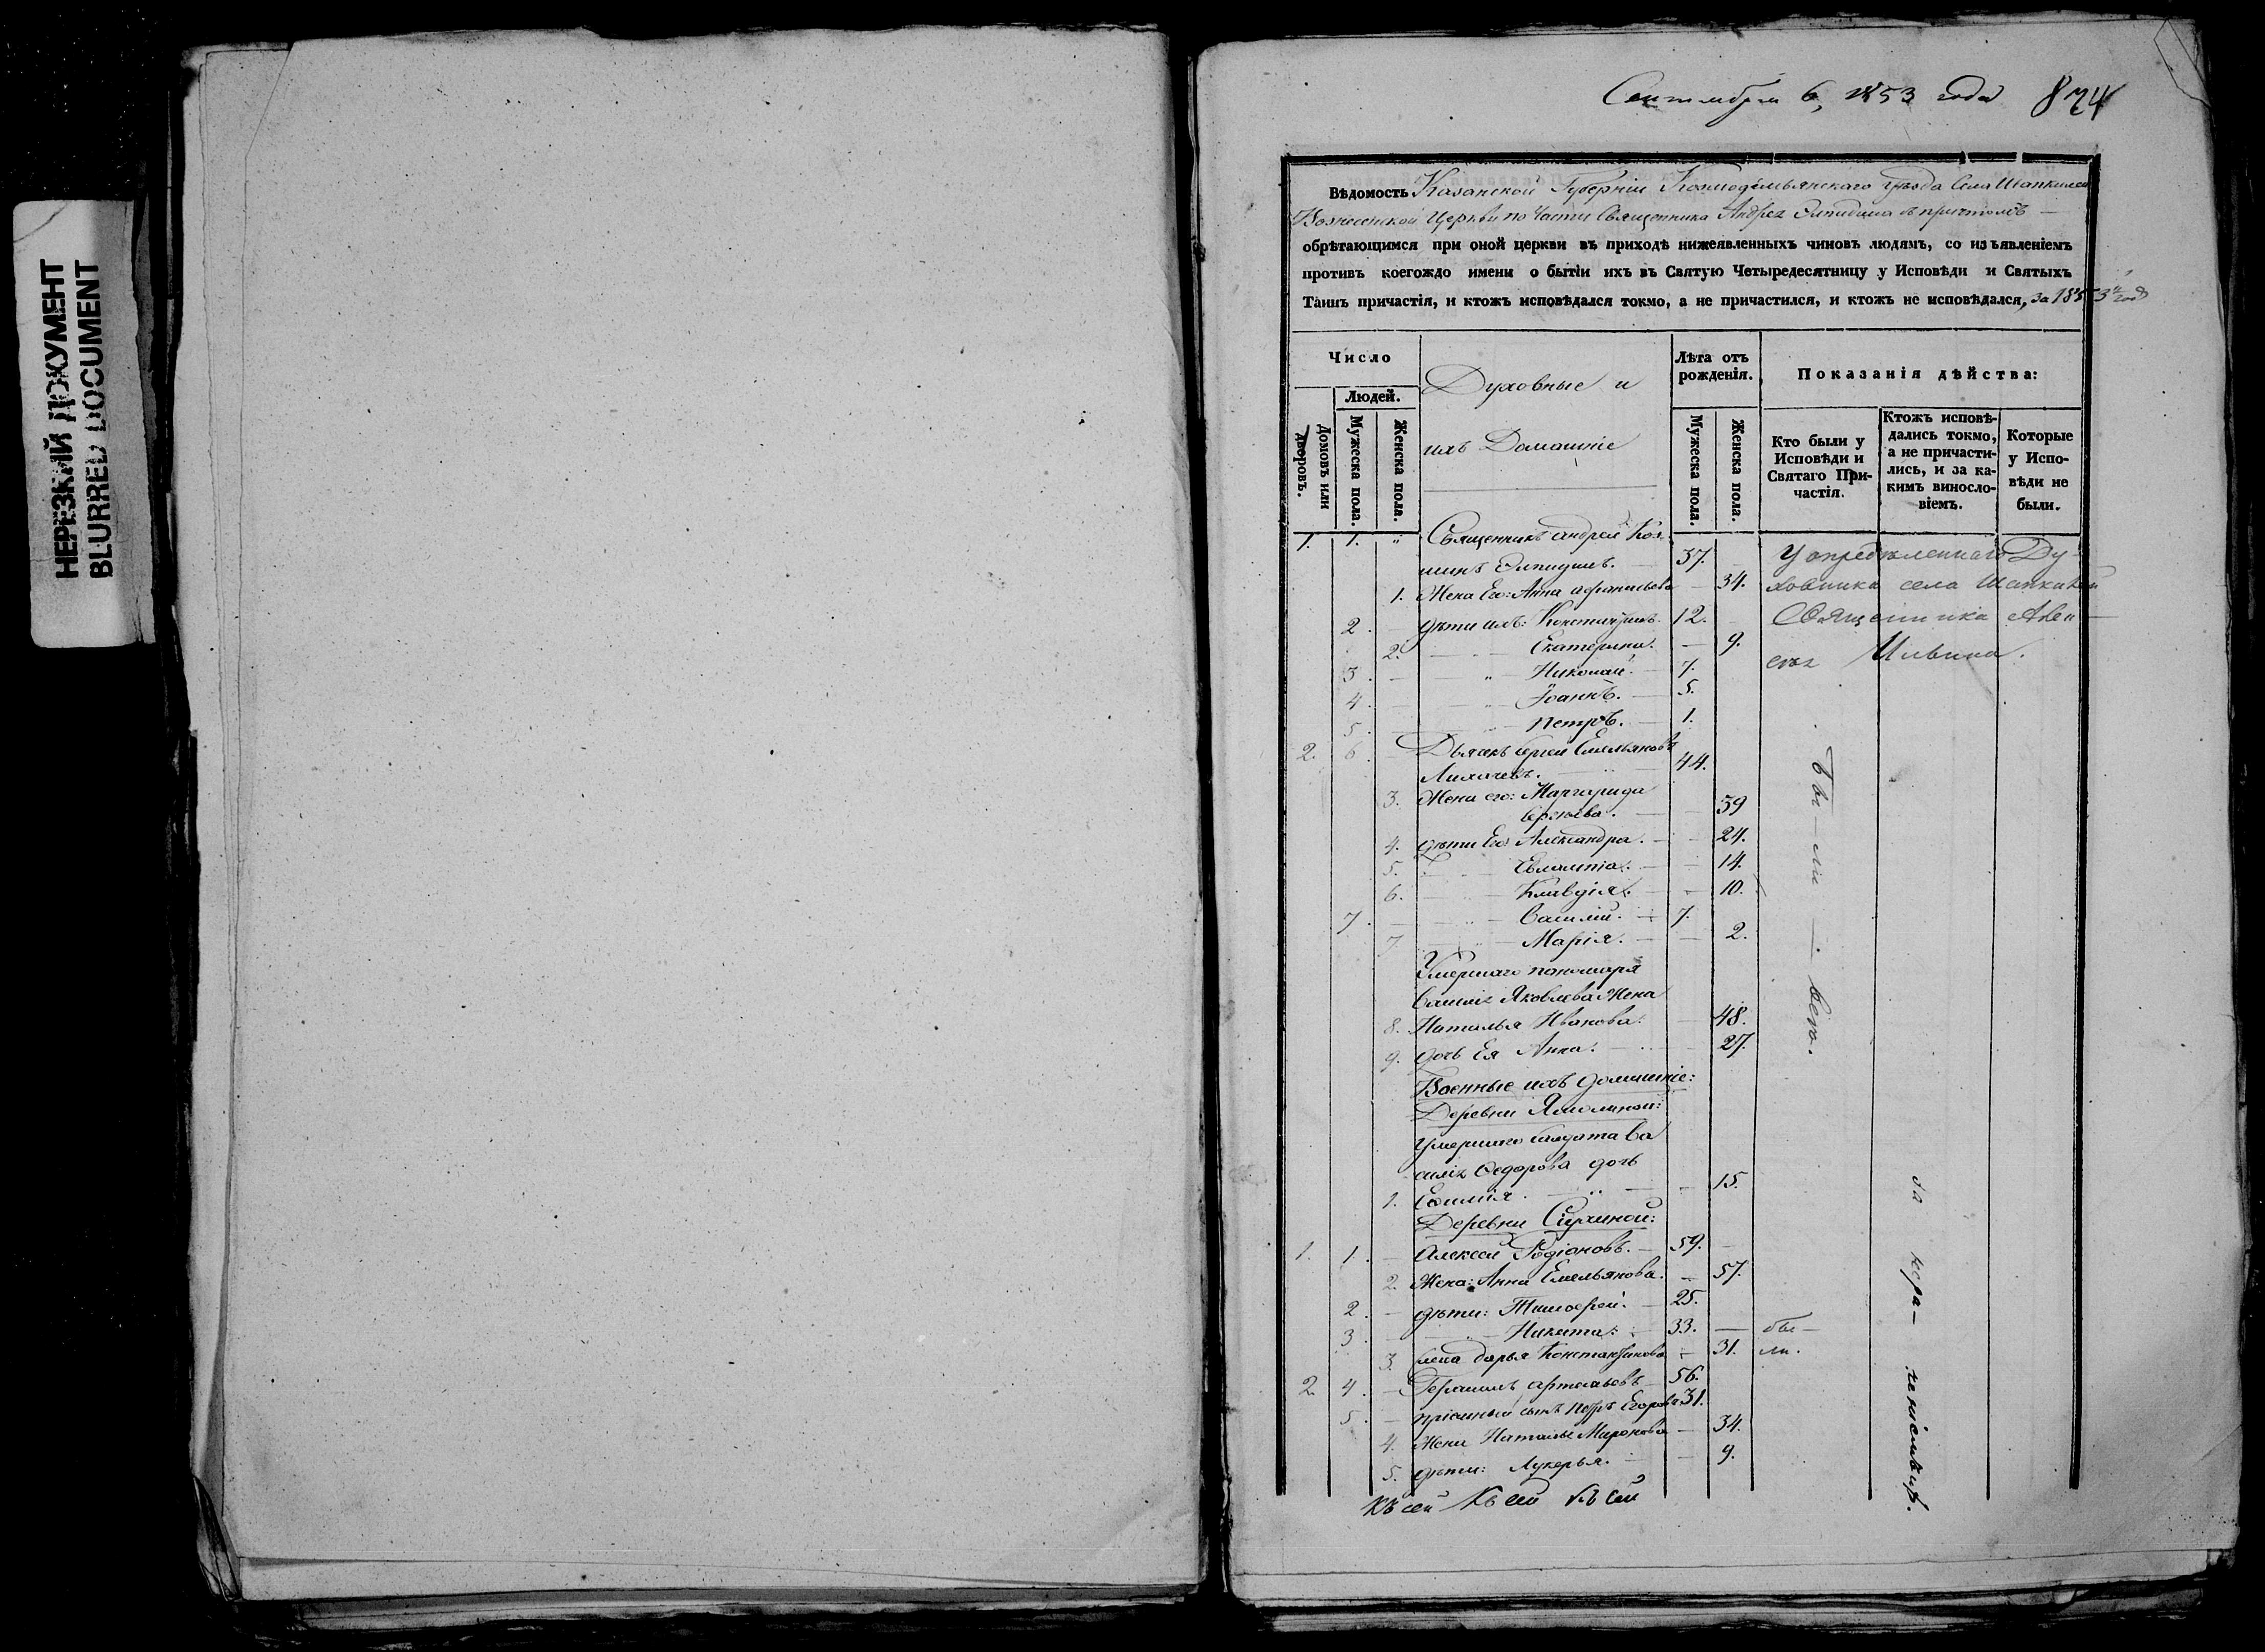 НЕРЕЗКИЙ ДОКУМЕНТ
BLURRED DOCUMENT
Сентября 6, 1853 года 874
Вѣдомость Казанской Губерніи Козмодемьянскаго уѣзда Села
Вознесенской Церкви по части Священника Андрея съ причтомъ
обрѣтающимся при оной церкви въ приходѣ нижеявленныхъ чиновъ людямъ, со изъявленіемъ
противъ коегождо имени о бытіи ихъ въ Святую Четыредесятницу у Исповѣди и Святыхъ
Таинъ причастія, и ктожъ исповѣдался токмо, а не причастился, и ктожъ не исповѣдался, за 1853й год
Число
Людей.
Домовъ или дворовъ.
Мужеска пола.
Женска пола.
Духовные и
ихъ Домашніе
Лѣта отъ рожденія.
Мужеска пола.
Женска пола.
Показанія дѣйства:
Кто были у Исповѣди и Святаго Причастія.
Ктожъ исповѣдались токмо, а не причастились, и за какимъ винословіемъ.
Которые у Исповѣди не были.
1. 1. " Священникъ Андрей
37. У опредѣленнаго Ду-
1. Жена Его: Анна 34. ховника села
2. дѣти ихъ: Константинъ. 12. Священника Алек-
2. Екатерина. 9. сѣя
3. " Николай. 7.
4. Іоаннъ. 5.
5. Петръ. 1.
2. 6. Дьячекъ Сергей Емельяновъ
Лихачевъ. 44.
3. Жена его: Маргарида
Сергѣева. 39
4. дѣти Его: Александра. 24.
5. Евлампія. 14.
6. Клавдія. 10.
7. Василій. 7.
7. Марія. 2.
Бы - ли - всѣ.
Умершаго пономаря
Василія Яковлева Жена
8. Наталья Иванова. 48.
9. дочь Ея Анна. 27.
Военные ихъ домашніе:
Деревни
Умершаго солдата Ва
силія Федорова дочь
1. 15.
Деревни
1. 1. Алексей Родіоновъ. 59.
2. Жена: Анна Емельянова. 57.
2. дѣти: Тимофей. 25.
3. Никита: 33. бы-
3. Дарья Константинова 31. ли.
2. 4. Герасимъ 56.
5. пріемный сынъ Петръ Егоровъ 31.
4. Жена Наталья Миронова 34.
5. дѣти: Лукерья. 9.
за нера-
Къ сей Къ сей Къ сей